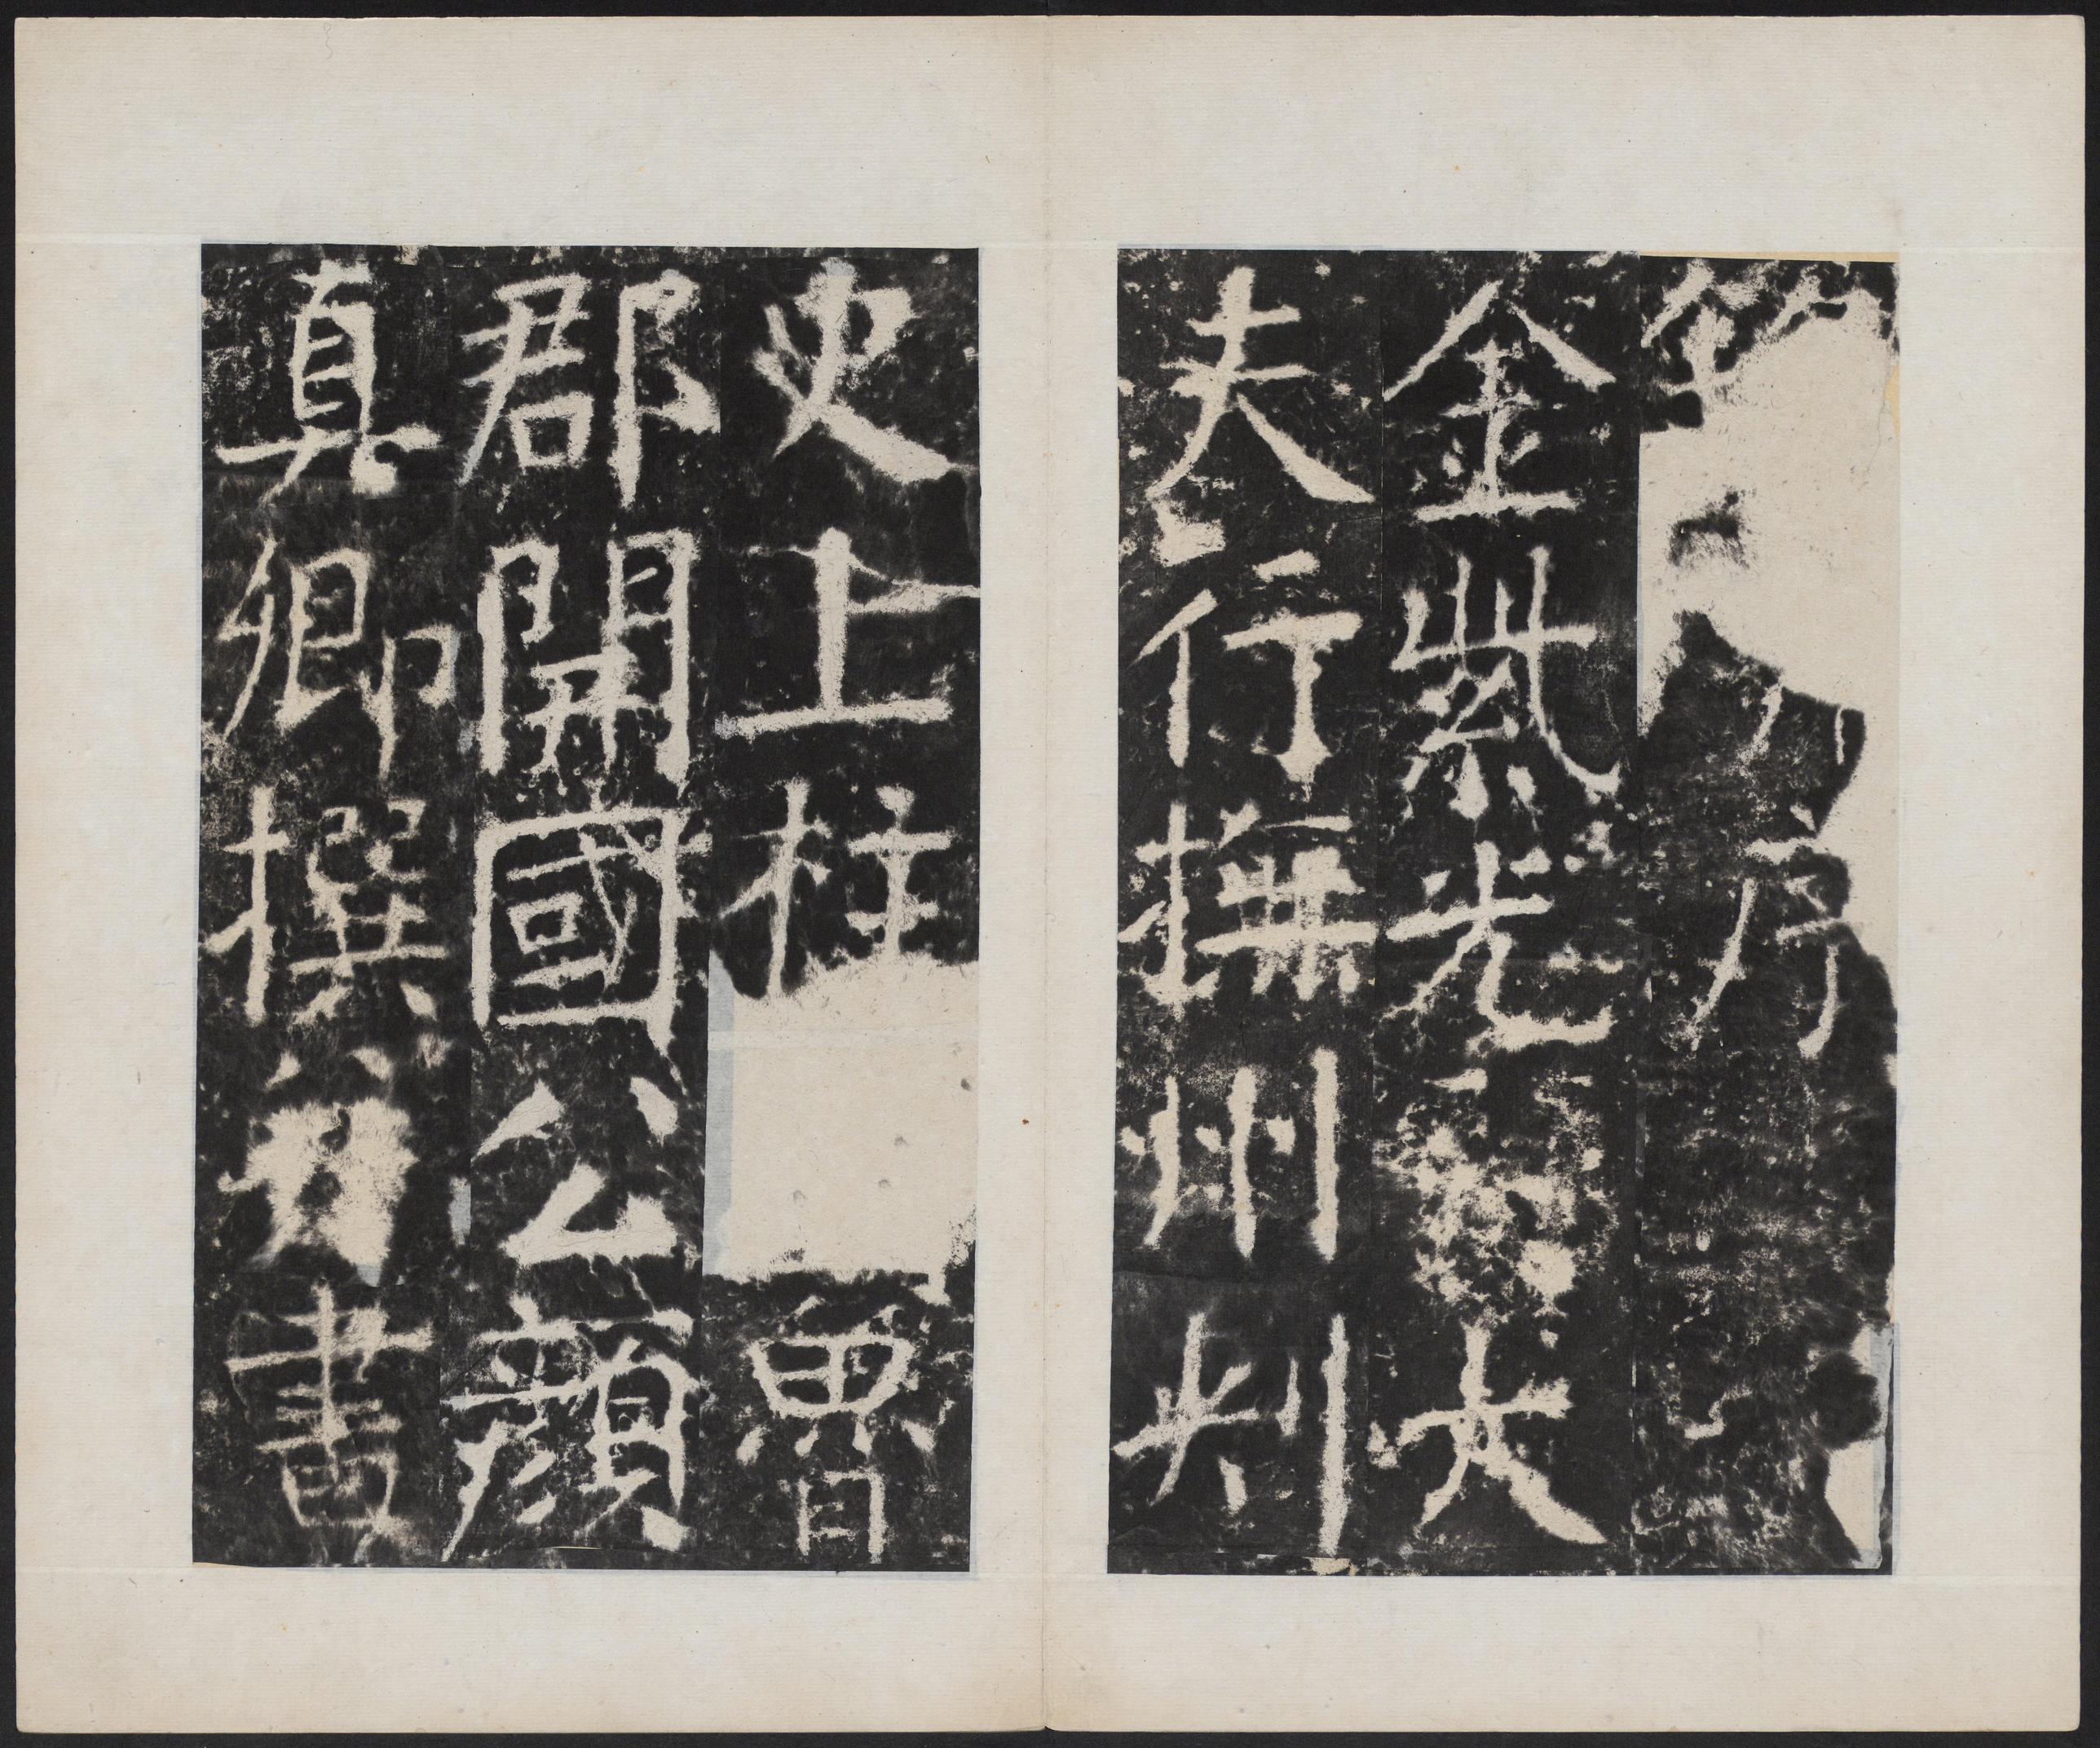 序
金紫光大
夫行撫州刺
史上柱魯
郡開國公顏
真卿撰書